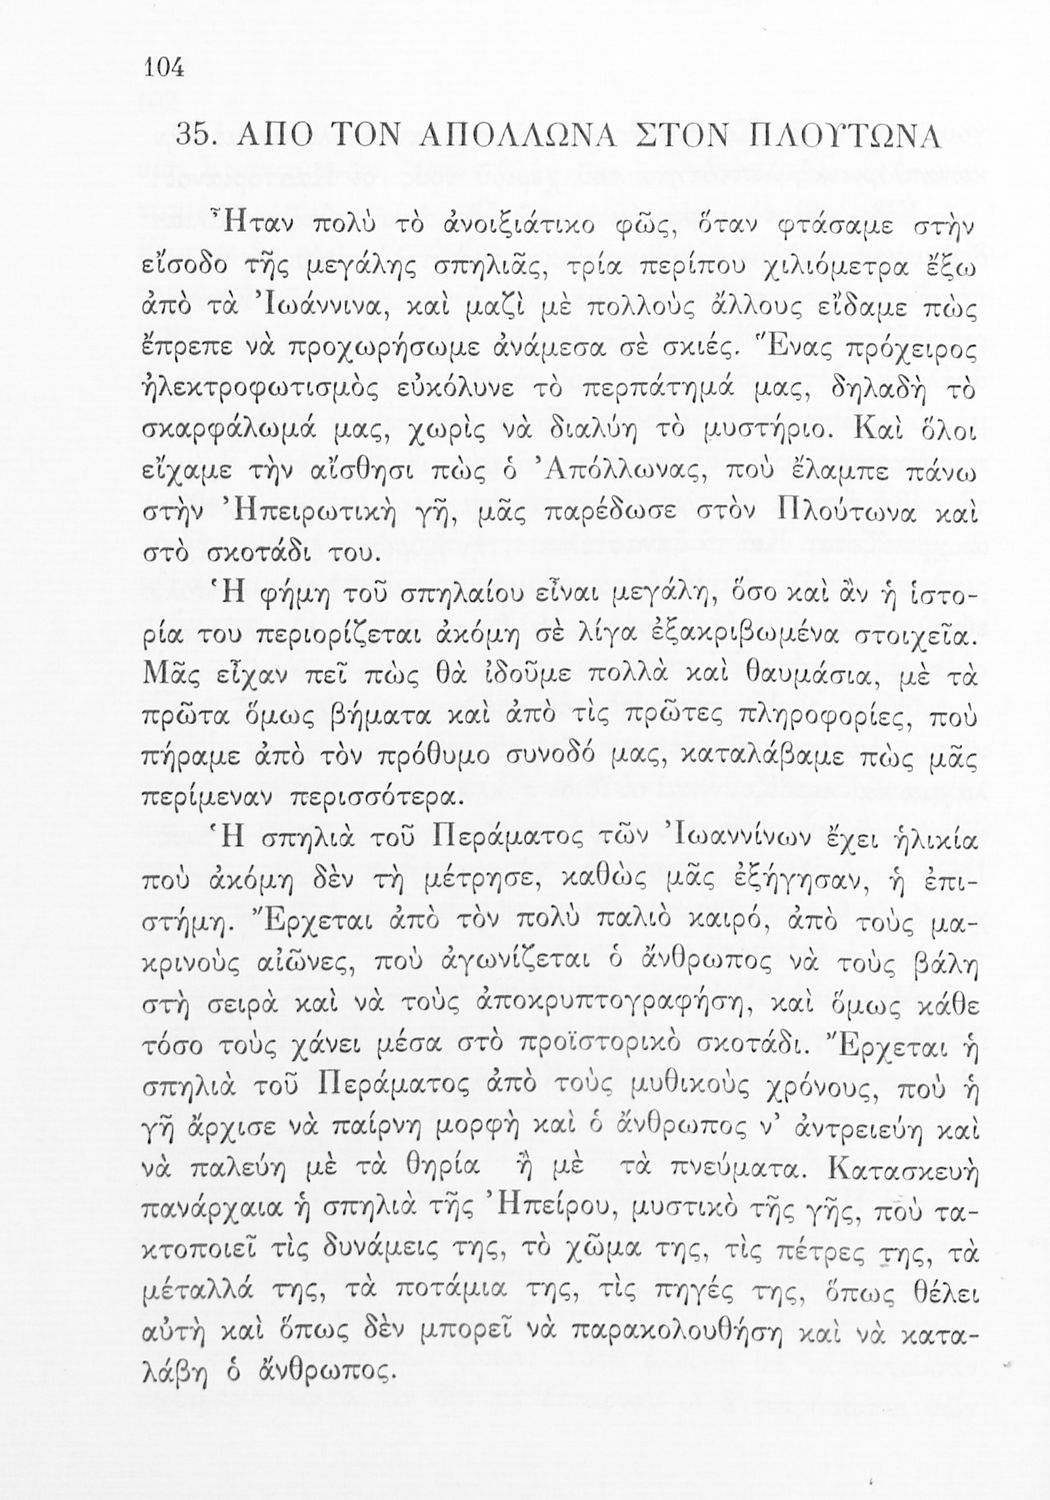 104
35. ΑΠΟ ΤΟΝ ΑΠΟΛΛΩΝΑ ΣΤΟΝ ΠΛΟΥΤΩΝΑ
Ἦταν πολὺ τὸ ἀνοιξιάτικο φῶς, ὅταν φτάσαμε στὴν
εἴσοδο τῆς μεγάλης σπηλιᾶς, τρία περίπου χιλιόμετρα ἔξω
ἀπὸ τὰ Ἰωάννινα, καὶ μαζὶ μὲ πολλοὺς ἄλλους εἴδαμε πὼς
ἔπρεπε νὰ προχωρήσωμε ἀνάμεσα σὲ σκιές. Ἕνας πρόχειρος
ἠλεκτροφωτισμὸς εὐκόλυνε τὸ περπάτημά μας, δηλαδὴ τὸ
σκαρφάλωμά μας, χωρὶς νὰ διαλύη τὸ μυστήριο. Καὶ ὅλοι
εἴχαμε τὴν αἴσθησι πὼς ὁ Ἀπόλλωνας, ποὺ ἔλαμπε πάνω
στὴν Ἠπειρωτικὴ γῆ, μᾶς παρέδωσε στὸν Πλούτωνα καὶ
στὸ σκοτάδι του.
Ἡ φήμη τοῦ σπηλαίου εἶναι μεγάλη, ὅσο καὶ ἂν ἡ ἱστο-
ρία του περιορίζεται ἀκόμη σὲ λίγα ἐξακριβωμένα στοιχεῖα.
Μᾶς εἶχαν πεῖ πὼς θὰ ἰδοῦμε πολλὰ καὶ θαυμάσια, μὲ τὰ
πρῶτα ὅμως βήματα καὶ ἀπὸ τὶς πρῶτες πληροφορίες, ποὺ
πήραμε ἀπὸ τὸν πρόθυμο συνοδό μας, καταλάβαμε πὼς μᾶς
περίμεναν περισσότερα.
Ἡ σπηλιὰ τοῦ Περάματος τῶν Ἰωαννίνων ἔχει ἡλικία
ποὺ ἀκόμη δὲν τὴ μέτρησε, καθὼς μᾶς ἐξήγησαν, ἡ ἐπι-
στήμη. Ἔρχεται ἀπὸ τὸν πολὺ παλιὸ καιρό, ἀπὸ τοὺς μα-
κρινοὺς αἰῶνες, ποὺ ἀγωνίζεται ὁ ἄνθρωπος νὰ τοὺς βάλη
στὴ σειρὰ καὶ νὰ τοὺς ἀποκρυπτογραφήση, καὶ ὅμως κάθε
τόσο τοὺς χάνει μέσα στὸ προϊστορικὸ σκοτάδι. Ἔρχεται ἡ
σπηλιὰ τοῦ Περάματος ἀπὸ τοὺς μυθικοὺς χρόνους, ποὺ ἡ
γῆ ἄρχισε νὰ παίρνη μορφὴ καὶ ὁ ἄνθρωπος ν' ἀντρειεύη καὶ
νὰ παλεύη μὲ τὰ θηρία ἢ μὲ τὰ πνεύματα. Κατασκευὴ
πανάρχαια ἡ σπηλιὰ τῆς Ἠπείρου, μυστικὸ τῆς γῆς, ποὺ τα-
κτοποιεῖ τὶς δυνάμεις της, τὸ χῶμα της, τὶς πέτρες της, τὰ
μέταλλά της, τὰ ποτάμια της, τὶς πηγές της, ὅπως θέλει
αὐτὴ καὶ ὅπως δὲν μπορεῖ νὰ παρακολουθήση καὶ νὰ κατα-
λάβη ὁ ἄνθρωπος.